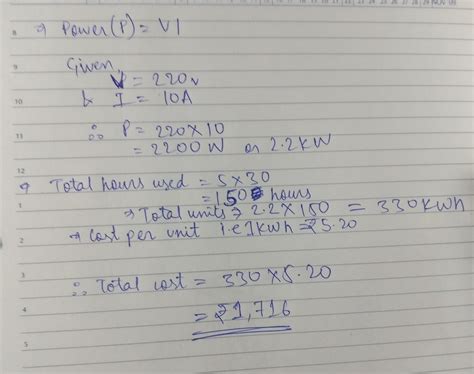 8 → Power (P) = VI
9 Given,
V = 220v
10 & I = 10A
11 ∴ P = 220 × 10
= 2200 W or 2.2 kW
12
→ Total hours used = 5 × 30
1 = 150 hours
→ Total units → 2.2 × 150 = 330 kWh
2 → Cost per unit i.e 1 kWh = ₹5.20
3 ∴ Total cost = 330 × 5.20
4 = ₹1,716
5